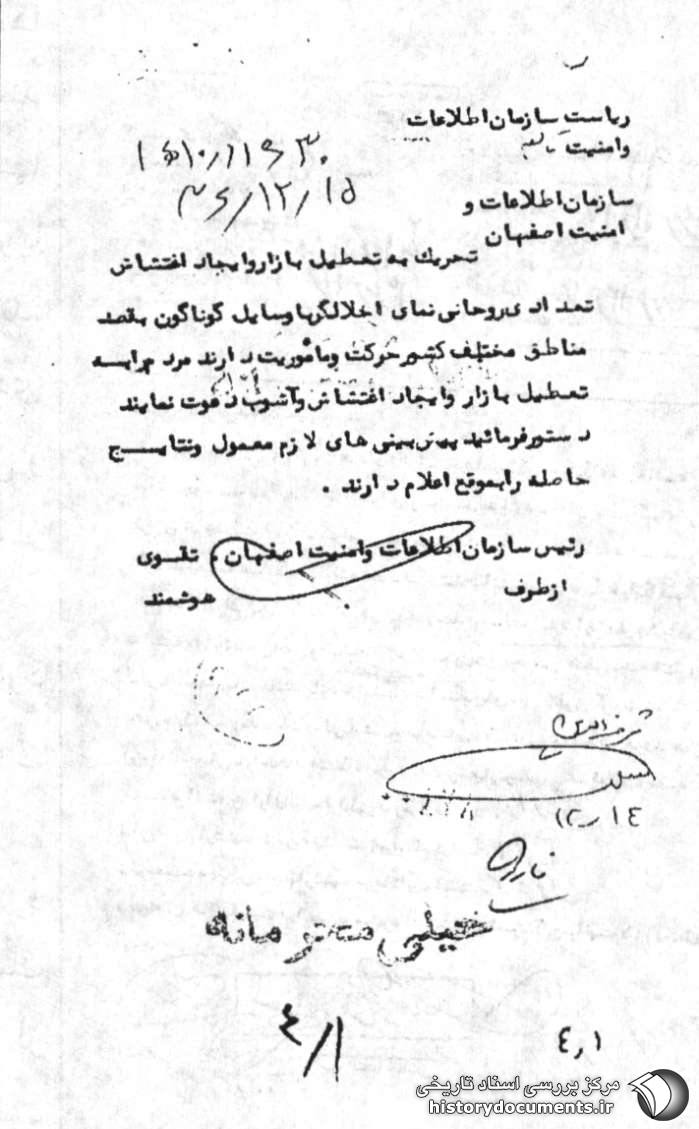 ریاست سازمان اطلاعات
وامنیت
۱۵۱۰/۱۱۶۳۰
۳۶/۱۲/۱۵
سازمان اطلاعات و
امنیت اصفهان
تحریک به تعطیل بازار وایجاد اغتشاش
تعدادی روحانی نمای اخلالگر با وسایل گوناگون بقصد
مناطق مختلف کشور حرکت و مأموریت دارند مردم را به
تعطیل بازار وایجاد اغتشاش وآشوب دعوت نمایند
دستور فرمائید پیش بینی های لازم معمول ونتایج
حاصله را بموقع اعلام دارند .
رئیس سازمان اطلاعات وامنیت اصفهان . تقوی
ازطرف هوشمند
۱۲/۱۴
خیلی محرمانه
۴/۱
۴/۱
مرکز بررسی اسناد تاریخی
historydocuments.ir